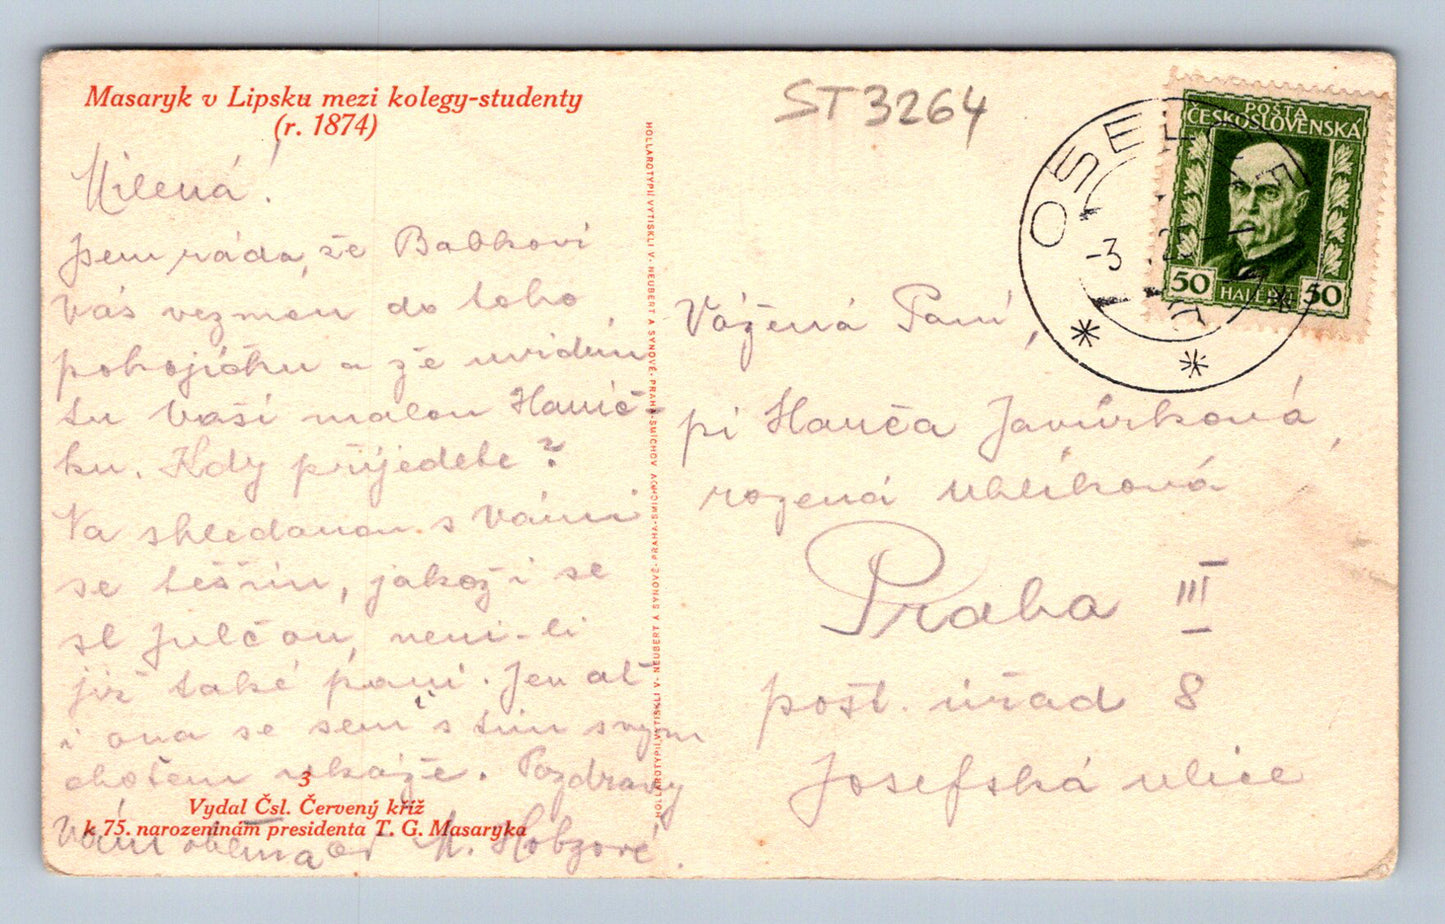 Masaryk v Lipsku mezi kolegy-studenty
(r. 1874)
ST3264
POŠTA
ČESKOSLOVENSKÁ
50 HALÉŘŮ 50
OSEL
-3
Milená!
Jsem ráda, že Babkovi
Vás vezmou do toho
pokojíčku a že uvidím
tu Vaší malou Hanič-
ku. Kdy přijedete?
Na shledanou s Vámi
se těším, jakož i se
sl. Julčou, není-li
již také paní. Jen ať
i ona se sem s tím svým
chotěm ukáže. Pozdravy
Vám oběma od M. Hobzové.
3
Vydal Čsl. Červený kříž
k 75. narozeninám presidenta T. G. Masaryka
HOLLAROTYPII VYTISKLI V. NEUBERT A SYNOVÉ · PRAHA-SMÍCHOV
HOLLAROTYPII VYTISKLI V. NEUBERT A SYNOVÉ · PRAHA-SMÍCHOV
Vážená Paní,
pí Hanča Javůrková,
rozená Uhlíková
Praha III
pošt. úřad 8
Josefská ulice